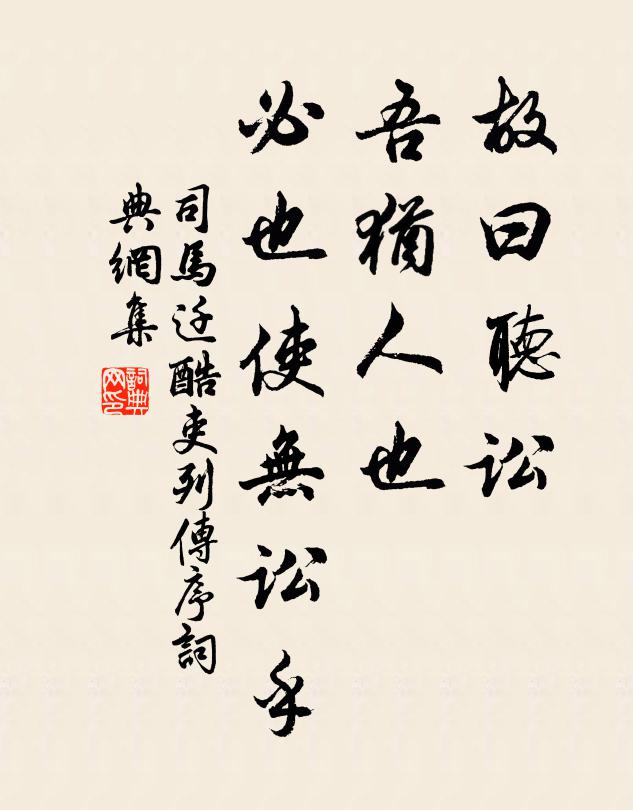 故曰聽訟
吾猶人也
必也使無訟乎
司馬迁酷吏列傳序詞
典網集
詞典
网印